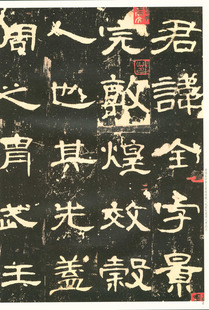 君諱全字景
完敦煌效穀
人也其先蓋
周之胄武王